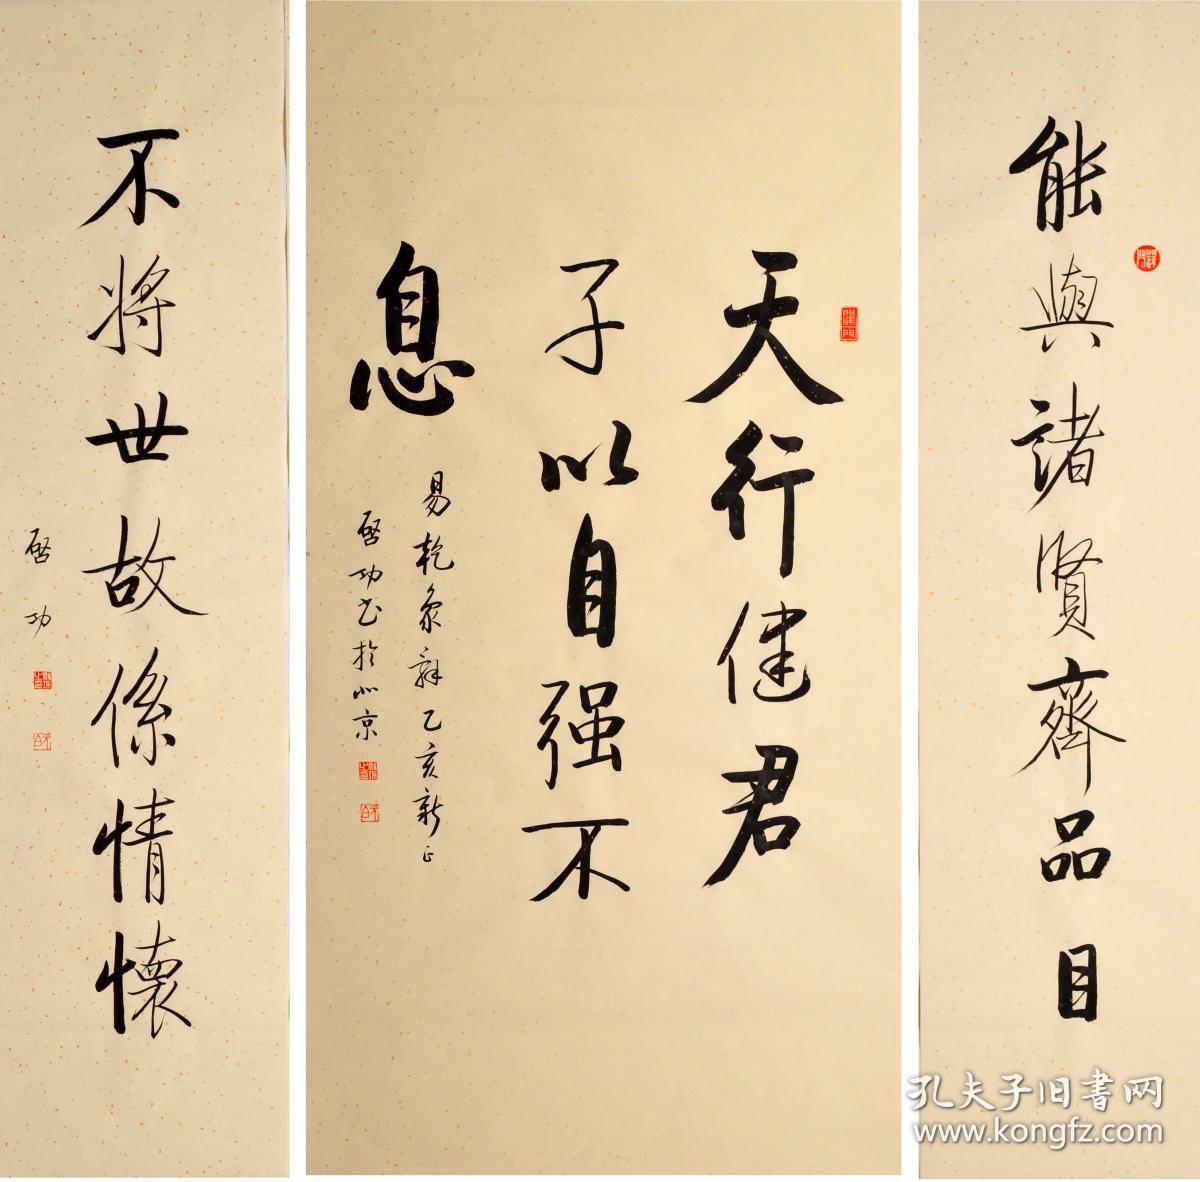 能與諸賢齊品目
天行健君
子以自强不
息
易乾象辞乙亥新正
啓功书於北京
不将世故係情懷
啓功
孔夫子旧書网
www.kongfz.com